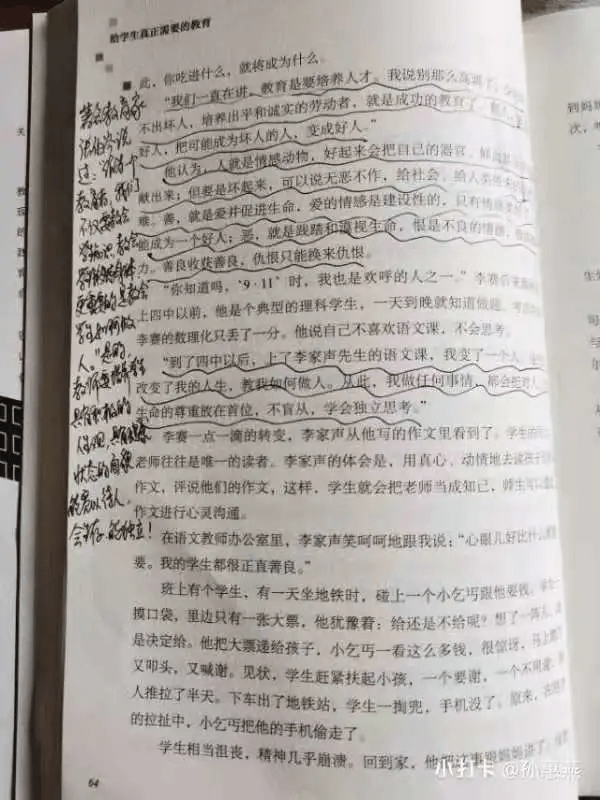 给学生真正需要的教育
此，你吃进什么，就将成为什么。
“我们一直在讲，教育是要培养人才。我说别那么高调了，
不出坏人，培养出平和诚实的劳动者，就是成功的教育了，
好人，把可能成为坏人的人，变成好人。”
他认为，人就是情感动物，好起来会把自己的器官、鲜
献出来；但要是坏起来，可以说无恶不作，给社会、给人类
难。善，就是爱并促进生命，爱的情感是建设性的，只有
他成为一个好人；恶，就是践踏和漠视生命，恨是不良的情感，
力。善良收获善良，仇恨只能换来仇恨。
“你知道吗，‘9·11’时，我也是欢呼的人之一。”李赛后来
上四中以前，他是个典型的理科学生，一天到晚就知道做题，考
李赛的数理化只丢了一分。他说自己不喜欢语文课，不会思考。
“到了四中以后，上了李家声先生的语文课，我变了一个人，
改变了我的人生，教我如何做人。从此，我做任何事情，都会把对
生命的尊重放在首位，不盲从，学会独立思考。”
李赛一点一滴的转变，李家声从他写的作文里看到了。学生的
老师往往是唯一的读者。李家声的体会是，用真心、动情地去读孩子
作文，评说他们的作文，这样，学生就会把老师当成知已，师生可以
作文进行心灵沟通。
在语文教师办公室里，李家声笑呵呵地跟我说：“心眼儿好比什么都
要。我的学生都很正直善良。”
班上有个学生，有一天坐地铁时，碰上一个小乞丐跟他要钱。学生一
摸口袋，里边只有一张大票，他犹豫着：给还是不给呢？想了一阵儿，
是决定给。他把大票递给孩子，小乞丐一看这么多钱，很惊讶，马上跪
又叩头，又喊谢。见状，学生赶紧扶起小孩，一个要谢，一个不用谢，
人推拉了半天。下车出了地铁站，学生一掏兜，手机没了。原来，在
的拉扯中，小乞丐把他的手机偷走了。
学生相当沮丧，精神几乎崩溃。回到家，他把这事跟妈妈讲了，
64
著名教育家
说
过：
教育者，我们
不仅要教会
学知识，教会
更重要的是教会
学生如何做
人。”是的，
具有积极的
状态的自我
能宽以待人，
会生存，能独立！
到妈妈
次，
小打卡 @孙